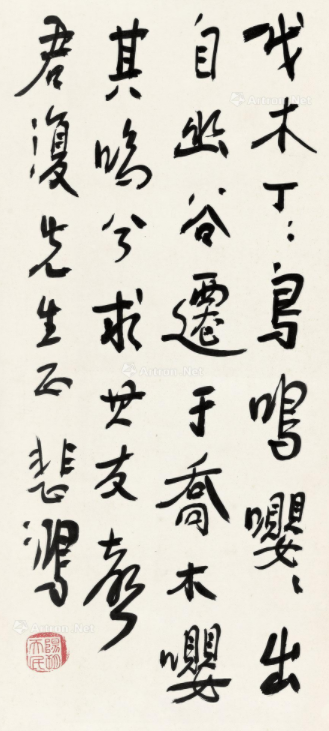 伐木丁:鳥鳴嚶:出
自幽谷遷于喬木嚶
其鳴兮求其友聲
君復先生正 悲鴻
陽朔天民
Artron.Net
Artron.Net
Artron.Net